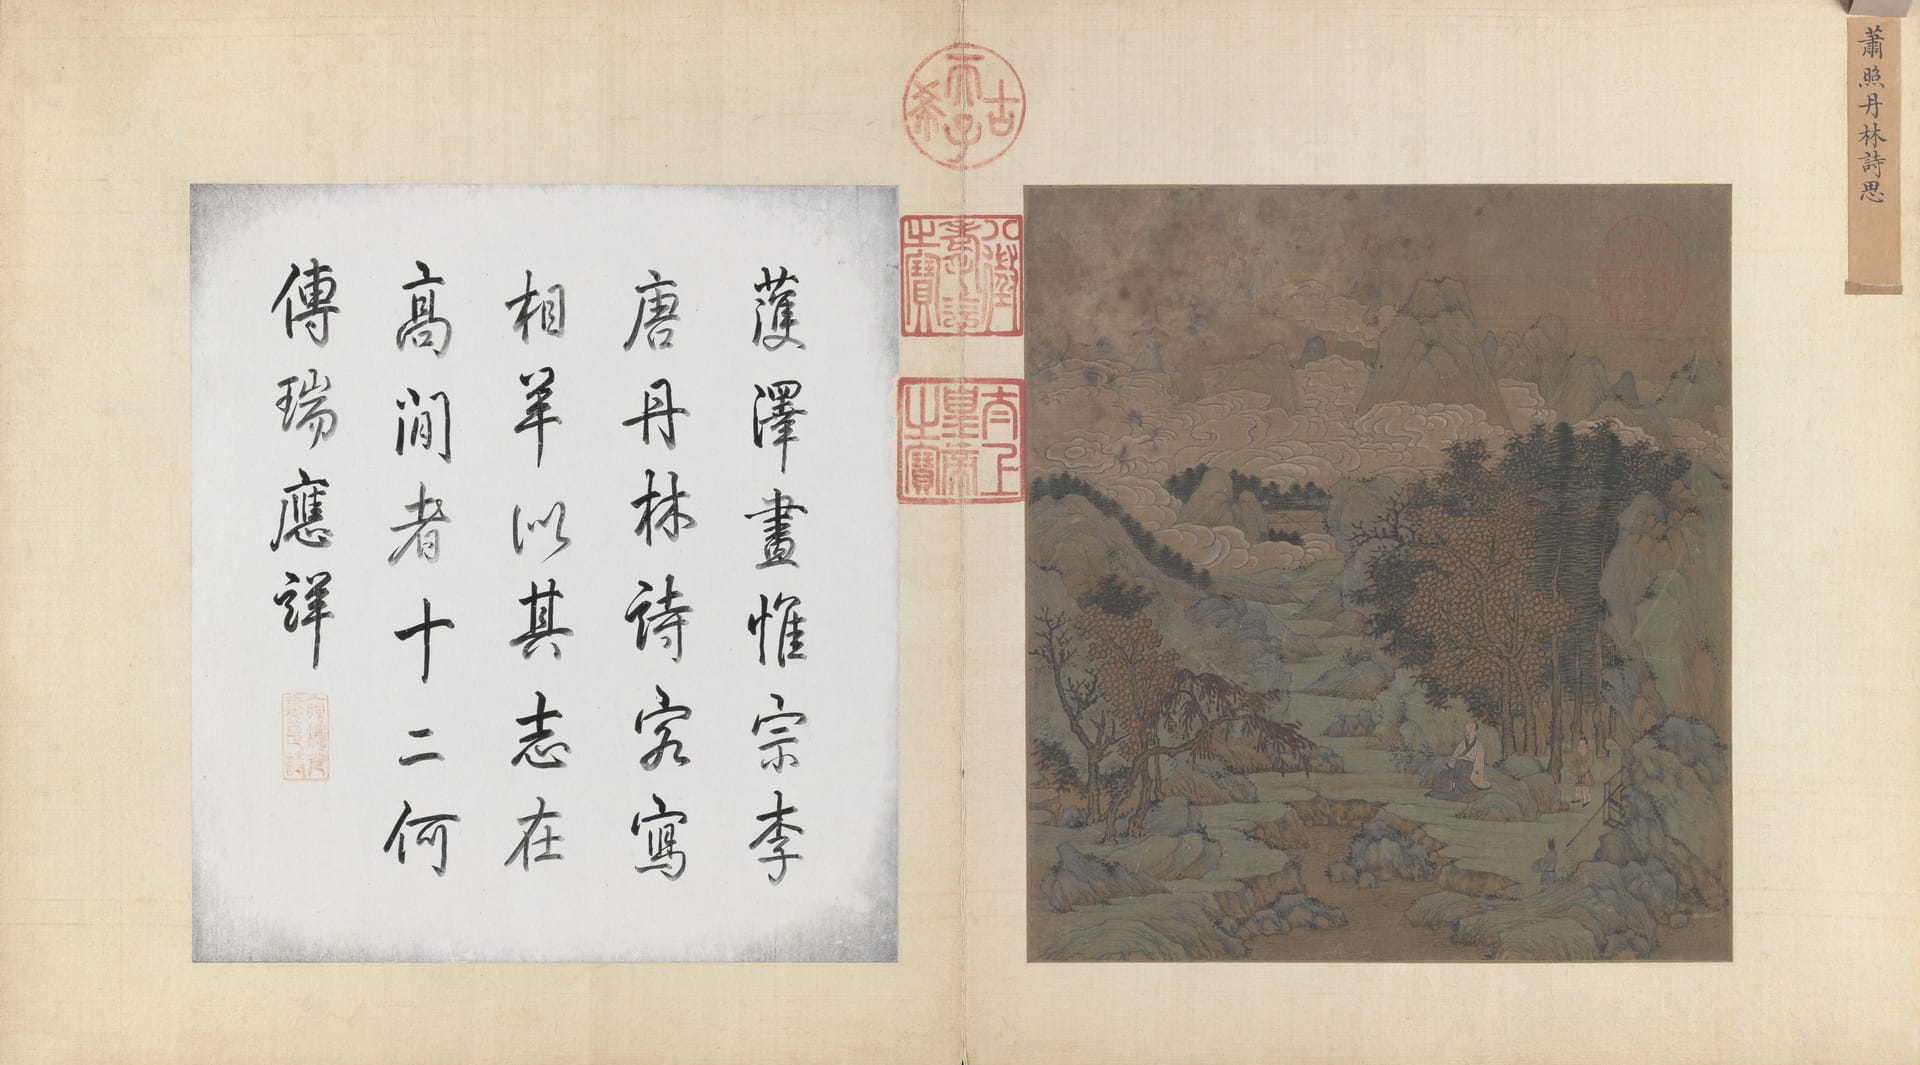 蕭照丹林詩思
古希天子
八徵耄念之寶
太上皇帝之寶
蒦澤畫惟宗李
唐丹林詩客寫
相羊以其志在
高閒者十二何
傳瑞應詳